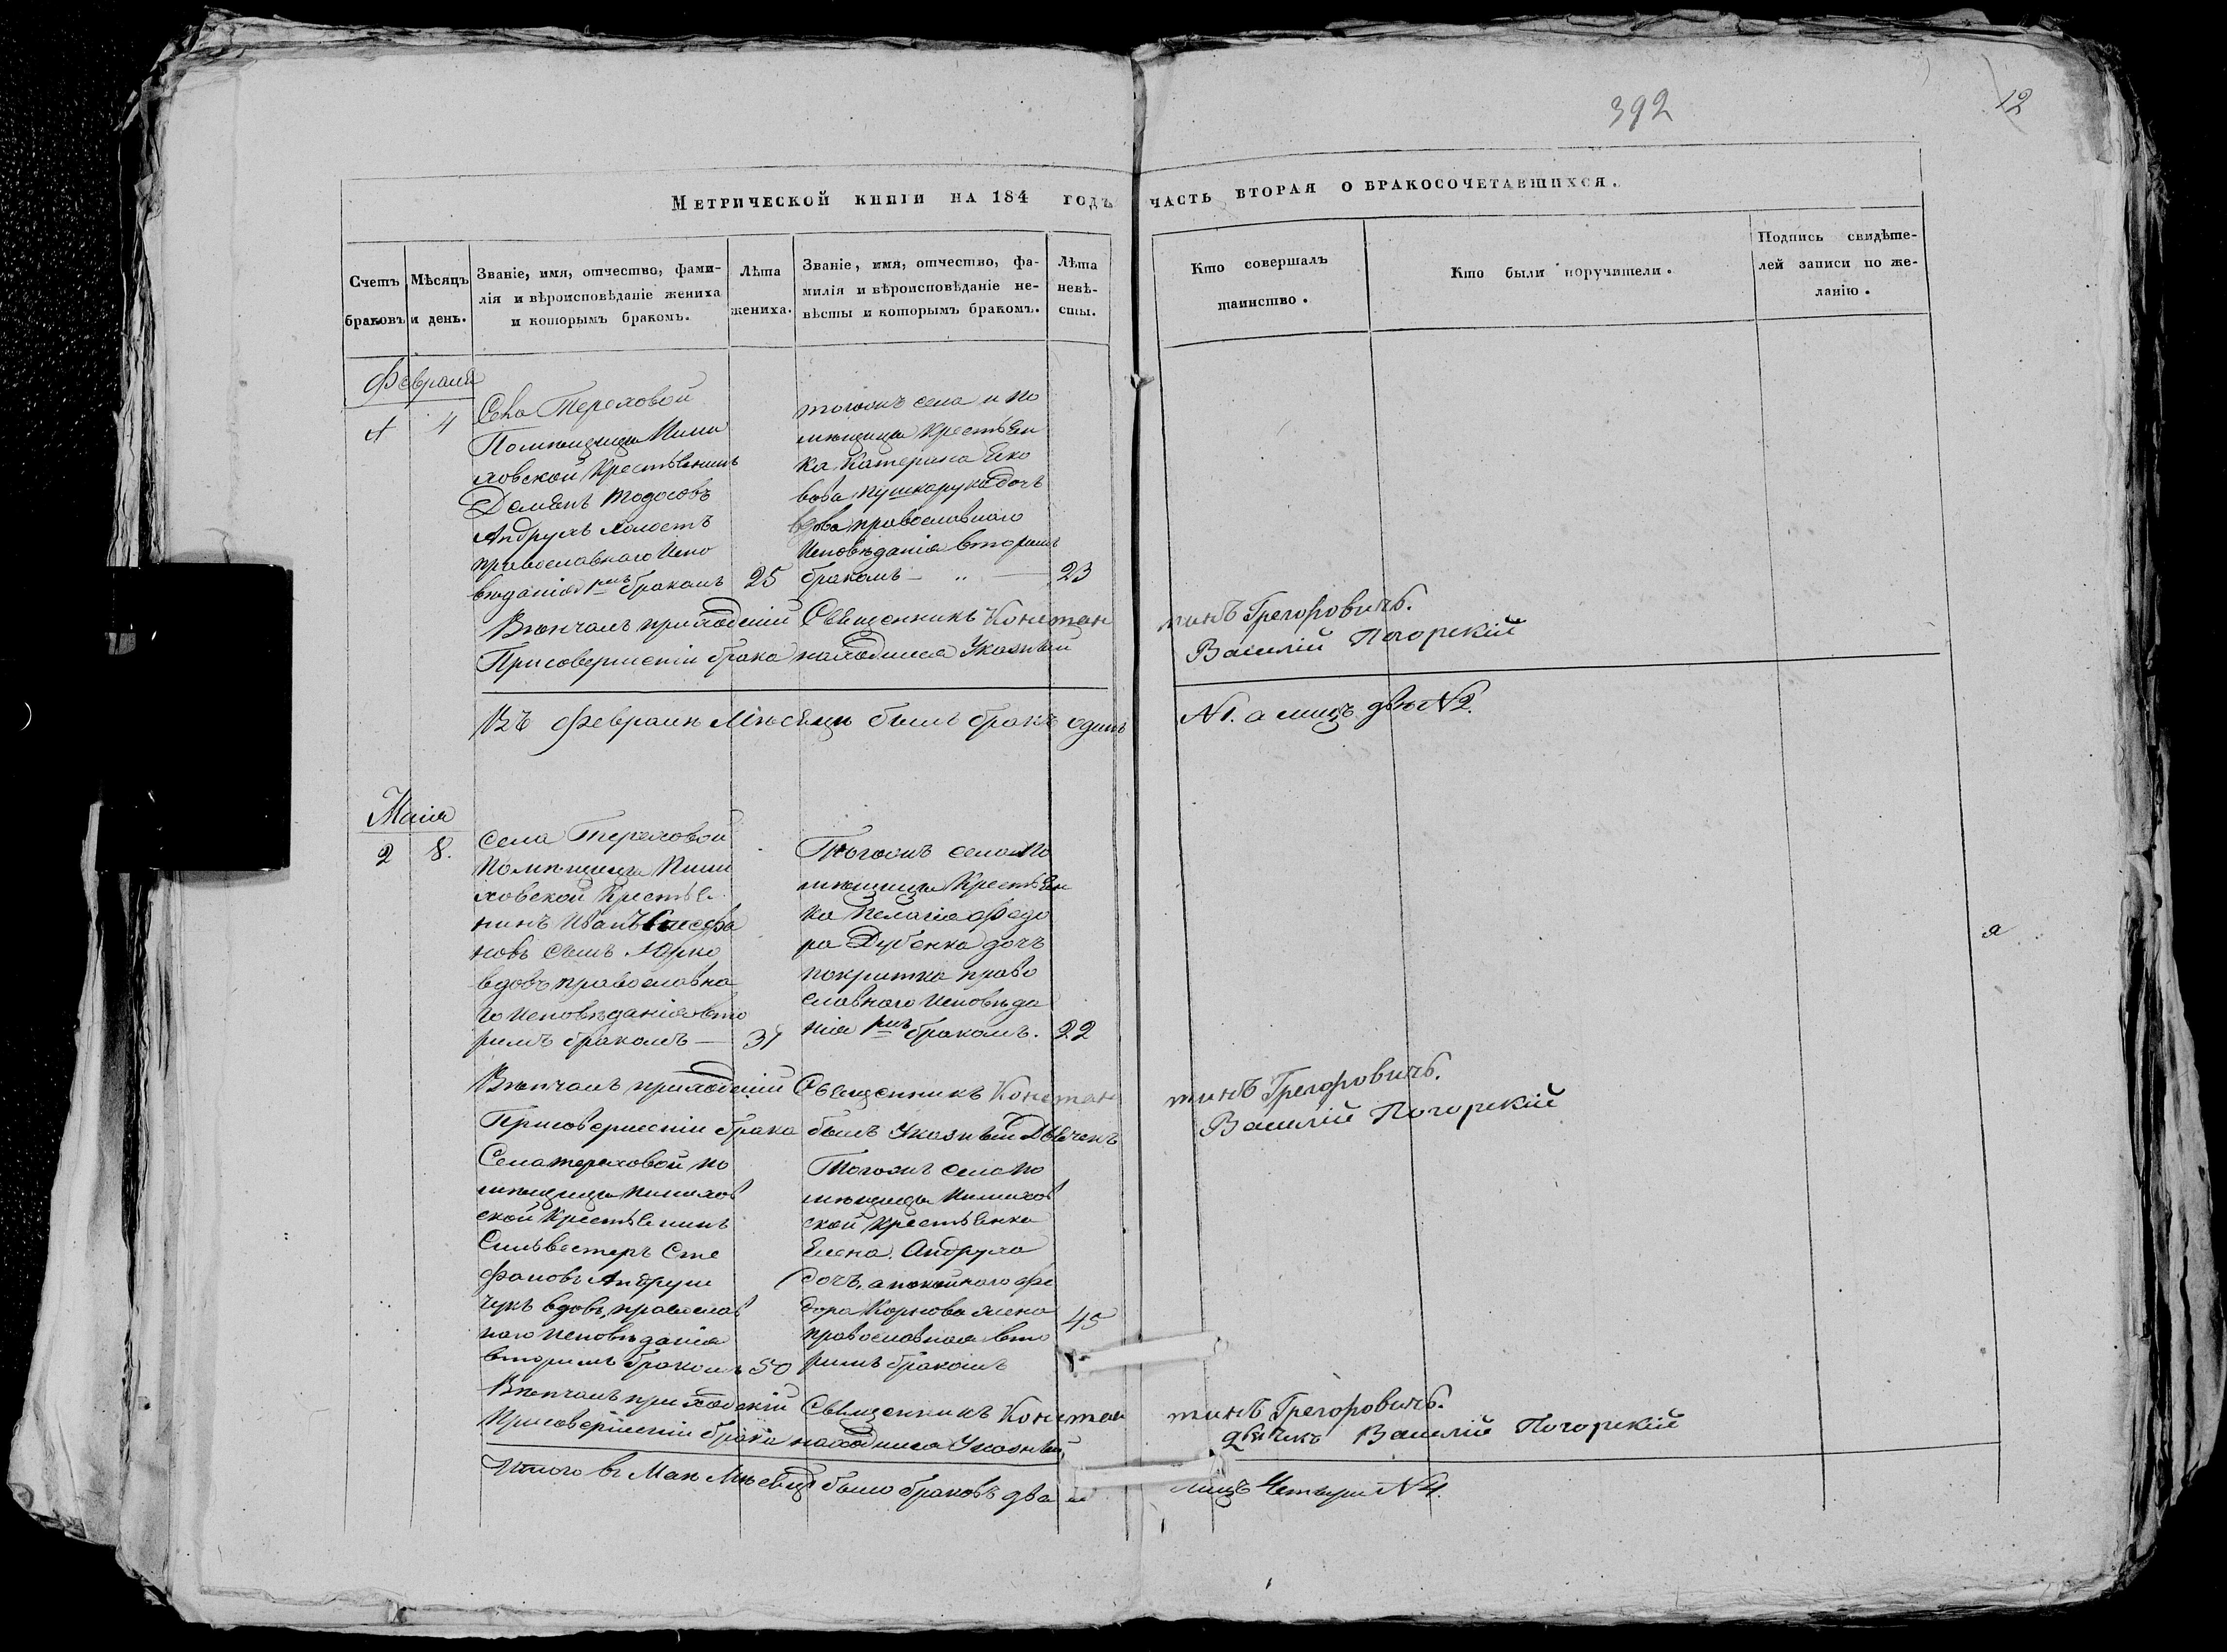 392
12
Метрической книги на 184 годъ часть вторая о бракосочетавшихся.
Счетъ браковъ
Мѣсяцъ и день.
Званіе, имя, отчество, фами-
лія и вѣроисповѣданіе жениха
и которымъ бракомъ.
Лѣта
жениха.
Званіе, имя, отчество, фа-
милія и вѣроисповѣданіе не-
вѣсты и которымъ бракомъ.
Лѣта
невѣ-
сты.
Кто совершалъ
таинство.
Кто были поручители.
Подпись свидѣте-
лей записи по же-
ланію.
Февраля
4
Села Тереховой
Помѣщицы
ховской Крестьенинъ
Демянъ Тодосовъ
Андрухъ холостъ
православнаго Испо
вѣданія рмъ бракомъ 25
тогожъ села и по
мѣщицы Крестьен
ка Катерина Яко
вова Пушкарука дочъ
вдова православнаго
Исповѣданія вторимъ
бракомъ — „ — 23
Вѣнчалъ приходскій Священникъ Констан тинъ Грегоровичъ.
Присовершеніи брака находился Указный Василій Погорскій
Въ Февралѣ Мѣсецѣ былъ бракъ одинъ N1. а лицъ двѣ N2.
Маія
2 8.
Села Тереховой
Помѣщицы
ховской Крестье
нинъ Иванъ
новъ сынъ
вдовъ православна
го Исповѣданія вто
римъ бракомъ — 31
Тогожъ села По
мѣщици Крестьен
ка Пелагія Федо
ра Дубенка дочъ
покритка право
славного Исповѣда
нія рмъ бракомъ. 22
Вѣнчалъ приходскій Священникъ Констан тинъ Грегоровичъ.
Присовершеніи брака былъ Указный Дьячекъ Василій Погорскій
Села Тереховой по
мѣщицы
ской Крестьенинъ
Сильвестеръ Сте
фановъ Андруш
чукъ вдовъ, православ
наго исповѣданія
вторимъ бракомъ 50
Тогожъ села По
мѣщицы
ской Крестьенка
Елена Андруха
дочъ, а покойного Фе
дора Корнова жена 45
православная вто
римъ бракомъ
Вѣнчалъ приходскій Священникъ Констан тинъ Грегоровичъ.
Присовершеніи брака находился Указный Дьячекъ Василій Погорскій
Итого въ Маѣ Мѣсецѣ было браковъ два и лицъ Четыри N4.